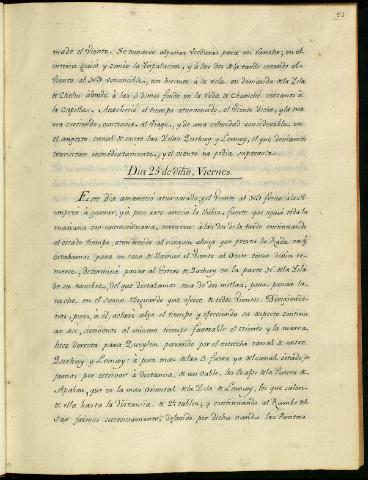 21
mado el viento. Se tomaron algunas verduras para mi Rancho; en el
interin guisó y comió la tripulacion, y á las dos de la tarde entrando el
viento al NO bonancible, nos hicimos á la vela en demanda de la Ysla
de Chelin adonde á las 5 dimos fondo en la Rada de cercanos á
la Capilla. Anocheció el tiempo aturbonado, el viento dicho, y la ma-
rea creciendo, contraria al Viage, y de una velocidad considerable en
el angosto canal de entre las Yslas Quehuy y Lemuy, el que deviamos
transitar inmediatamente, y el viento no podia superarla.
Dia 25 de dicho, Viernes.
Este dia amaneció aturbonado, y el viento al NO fresco, á las 8
empezó á ganar, y á poco rato arreció la lluvia, fuerte que siguió toda la
mañana con extraordinaria, cerrazon: á las dos de la tarde continuando
el citado tiempo, atendiendo al ningun abrigo que presta la Rada en q.e
estabamos, para un caso de llamarse el viento al Oeste como debia te-
merse, determiné pasar al Estero de Quehuy en la parte N. de la Ysla
de su nombre, del que distabamos cosa de dos millas, para pasar la
noche en el sumo resguardo que ofrece de todos vientos. Dirigiendo-
nos, pues, á él, aclaró algo el tiempo y ofreciendo su aspecto continu-
ar asi, siendonos al mismo tiempo favorable el viento y la marea
hice derrota para Queylen pasando por el estrecho canal de entre
Quehuy y Lemuy: á poco mas de las 3 fuera ya del canal citado, de-
jamos por estribor á distancia de un cable, los bajos de la Punta de
Apabon, que es la mas oriental de la Ysla de Lemuy, los que salen
de ella hasta la distancia de 2 cables; y continuando al Rumbo del
Sur fuimos sucesivamente, dejando por dicha vanda las Puntas